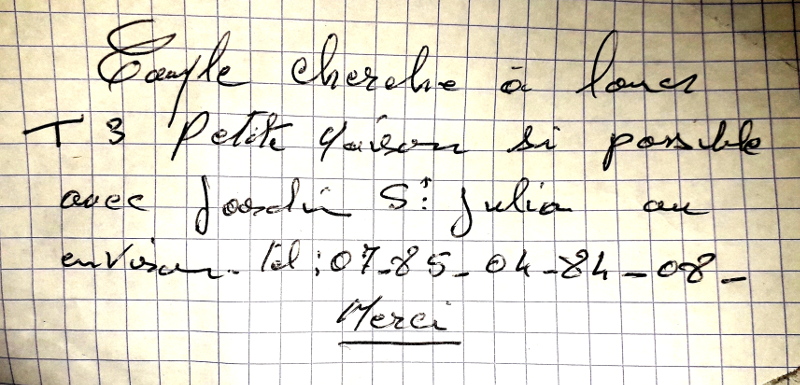 Couple cherche à louer
T3 Petite Maison si possible
avec Jardin St Julien ou
environ. Tel : 07-85-04-84-08-
Merci